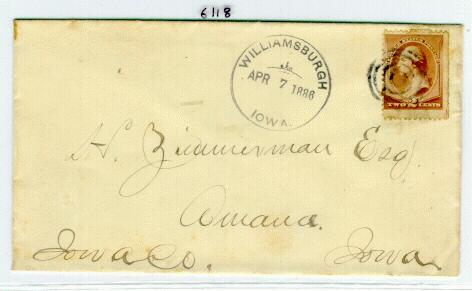 6118
WILLIAMSBURGH
APR 7 1886
IOWA.
TWO CENTS
H. Zimmerman Esq.
Amana.
Iowa Co. Iowa